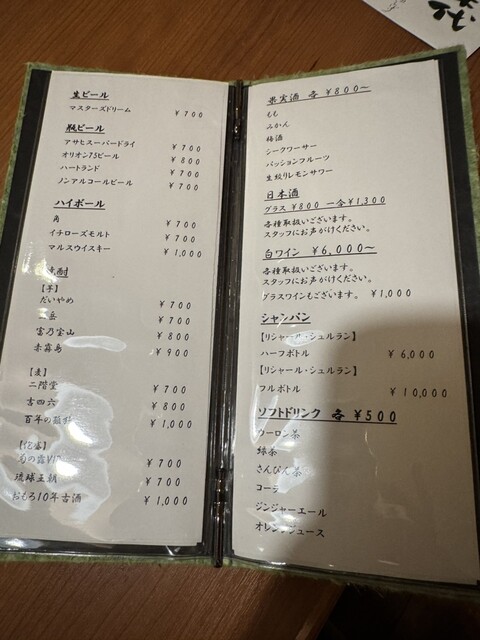 生ビール
マスターズドリーム ￥700
瓶ビール
アサヒスーパードライ ￥700
オリオン75ビール ￥800
ハートランド ￥700
ノンアルコールビール ￥700
ハイボール
角 ￥700
イチローズモルト ￥700
マルスウイスキー ￥1,000
焼酎
【芋】
だいやめ ￥700
岳 ￥700
富乃宝山 ￥800
赤霧島 ￥900
【麦】
二階堂 ￥700
吉四六 ￥800
百年の孤独 ￥1,000
【泡盛】
￥700
琉球王朝 ￥700
おもろ10年古酒 ￥1,000
果実酒 各 ￥800～
もも
みかん
梅酒
シークワーサー
パッションフルーツ
生絞りレモンサワー
日本酒
グラス ￥800 一合￥1,300
各種取扱いございます。
スタッフにお声がけください。
白ワイン ￥6,000～
各種取扱いございます。
スタッフにお声がけください。
グラスワインもございます。 ￥1,000
シャンパン
【リシャール・シュルラン】
ハーフボトル ￥6,000
【リシャール・シュルラン】
フルボトル ￥10,000
ソフトドリンク 各 ￥500
ウーロン茶
緑茶
さんぴん茶
コーラ
ジンジャーエール
オレンジジュース